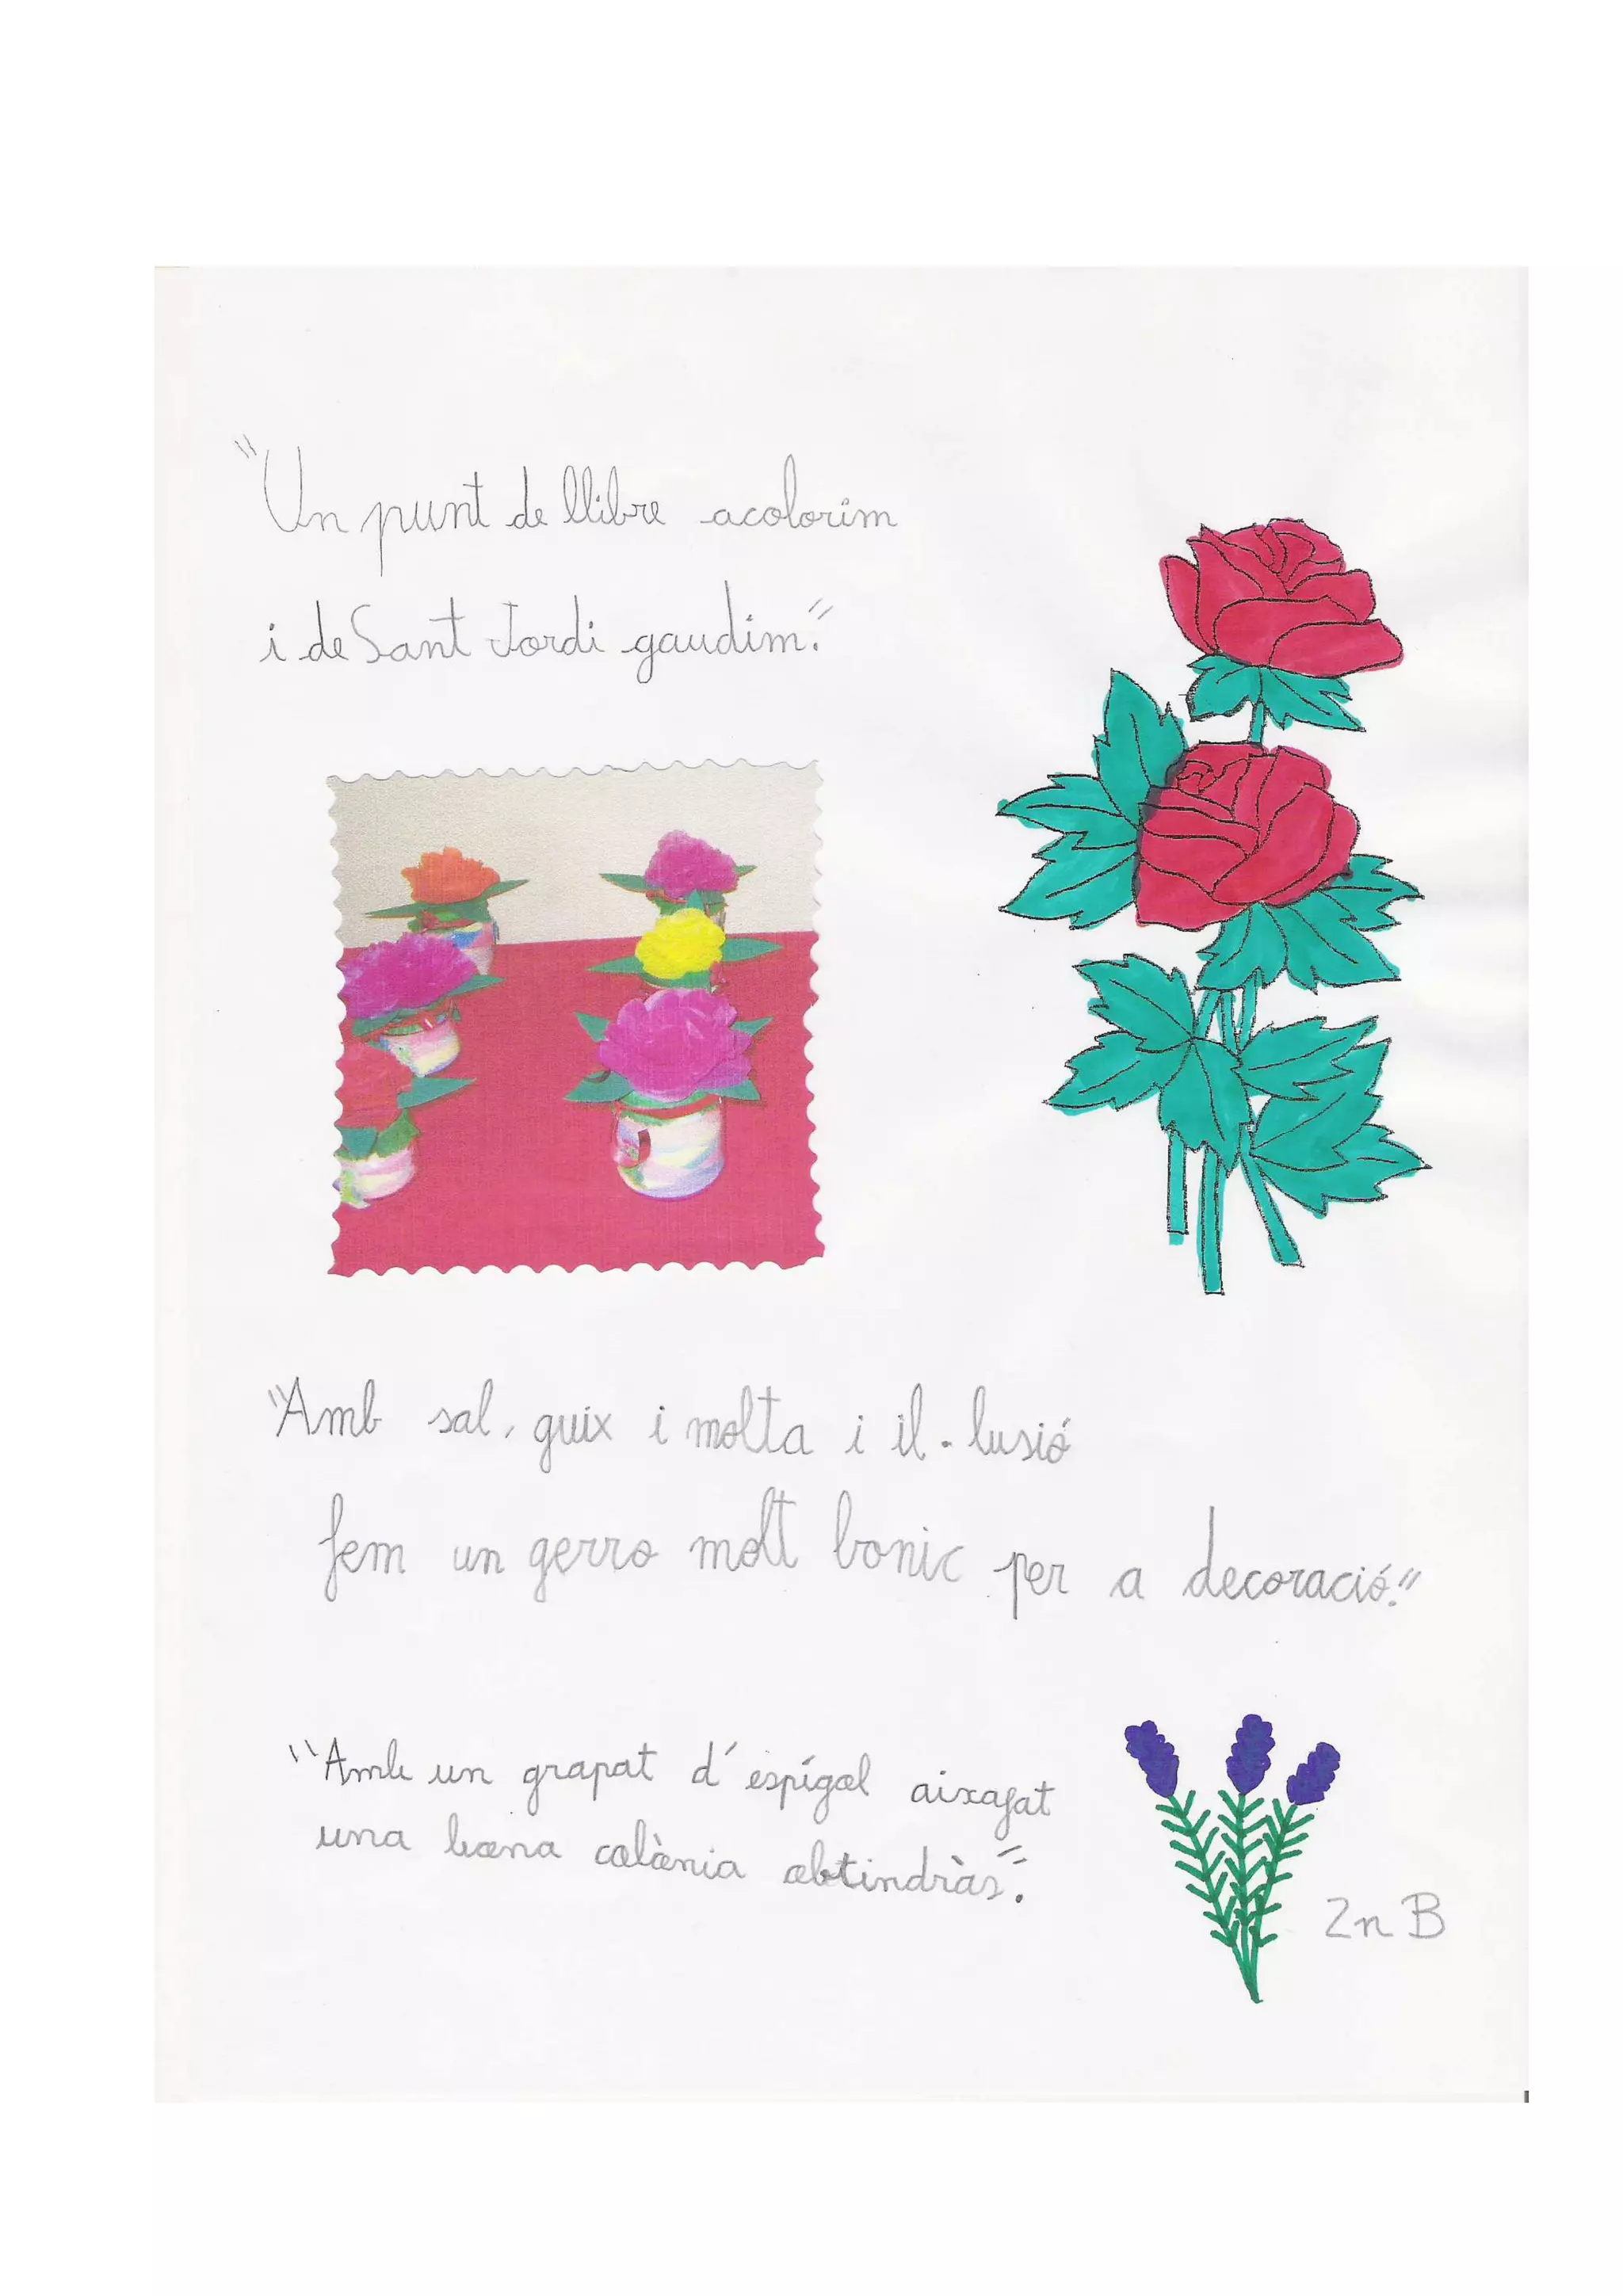 "Un punt de llibre acolorim
i de Sant Jordi gaudim."
"Amb sal, guix i molta i il·lusió
fem un gerro molt bonic per a decoració."
"Amb un grapat d'espígol aixafat
una bona colònia obtindràs".
2n B